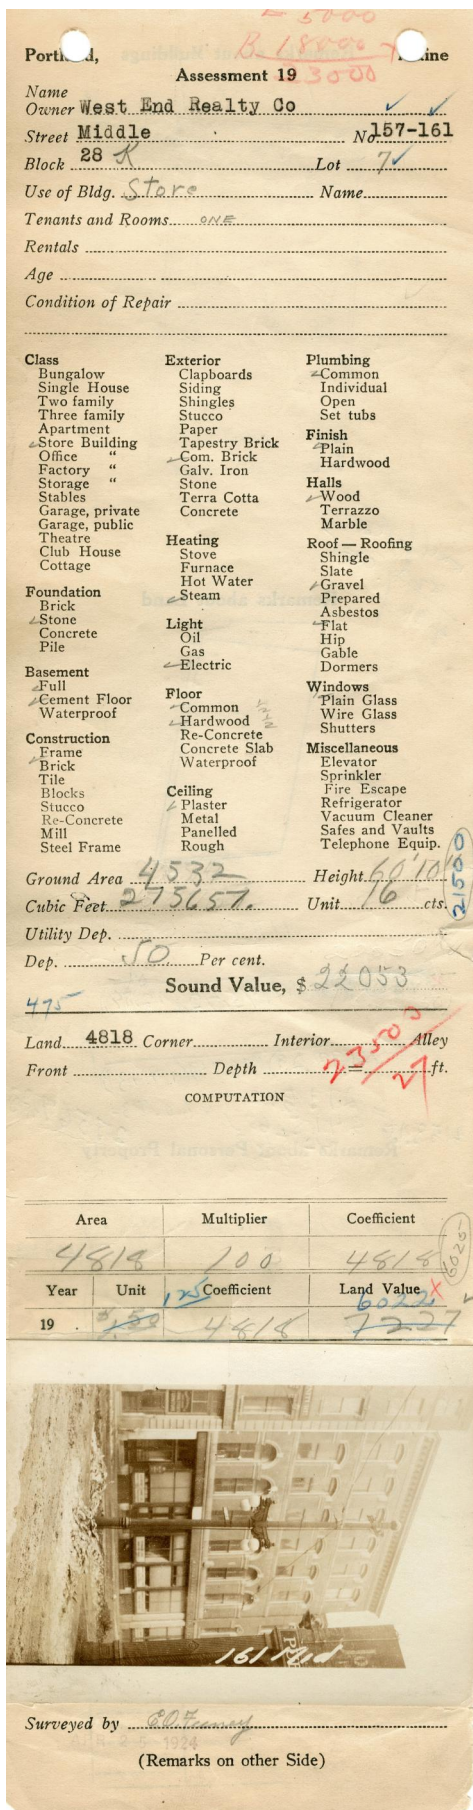 5000
B 18000 X
23000
Portland, Maine
Assessment 19
Name
Owner West End Realty Co
Street Middle No. 157-161
Block 28 K Lot 7
Use of Bldg. Store Name
Tenants and Rooms ONE
Rentals
Age
Condition of Repair
Class
Bungalow
Single House
Two family
Three family
Apartment
Store Building
Office "
Factory "
Storage "
Stables
Garage, private
Garage, public
Theatre
Club House
Cottage
Foundation
Brick
Stone
Concrete
Pile
Basement
Full
Cement Floor
Waterproof
Construction
Frame
Brick
Tile
Blocks
Stucco
Re-Concrete
Mill
Steel Frame
Exterior
Clapboards
Siding
Shingles
Stucco
Paper
Tapestry Brick
Com. Brick
Galv. Iron
Stone
Terra Cotta
Concrete
Heating
Stove
Furnace
Hot Water
Steam
Light
Oil
Gas
Electric
Floor
Common
Hardwood
Re-Concrete
Concrete Slab
Waterproof
Ceiling
Plaster
Metal
Panelled
Rough
Plumbing
Common
Individual
Open
Set tubs
Finish
Plain
Hardwood
Halls
Wood
Terrazzo
Marble
Roof — Roofing
Shingle
Slate
Gravel
Prepared
Asbestos
Flat
Hip
Gable
Dormers
Windows
Plain Glass
Wire Glass
Shutters
Miscellaneous
Elevator
Sprinkler
Fire Escape
Refrigerator
Vacuum Cleaner
Safes and Vaults
Telephone Equip.
Ground Area 4532 Height 60'10"
Cubic Feet 275657. Unit 16 cts.
21500
Utility Dep.
Dep. 50 Per cent.
Sound Value, $ 22053
475
Land 4818 Corner Interior Alley
Front Depth = ft.
23500
27
COMPUTATION
Area Multiplier Coefficient
4818 100 4818
6025
Year Unit Coefficient Land Value
125 6022 X
19 1.50 4818 7227
161 Mid
Surveyed by E.O. Feeney
1924
(Remarks on other Side)